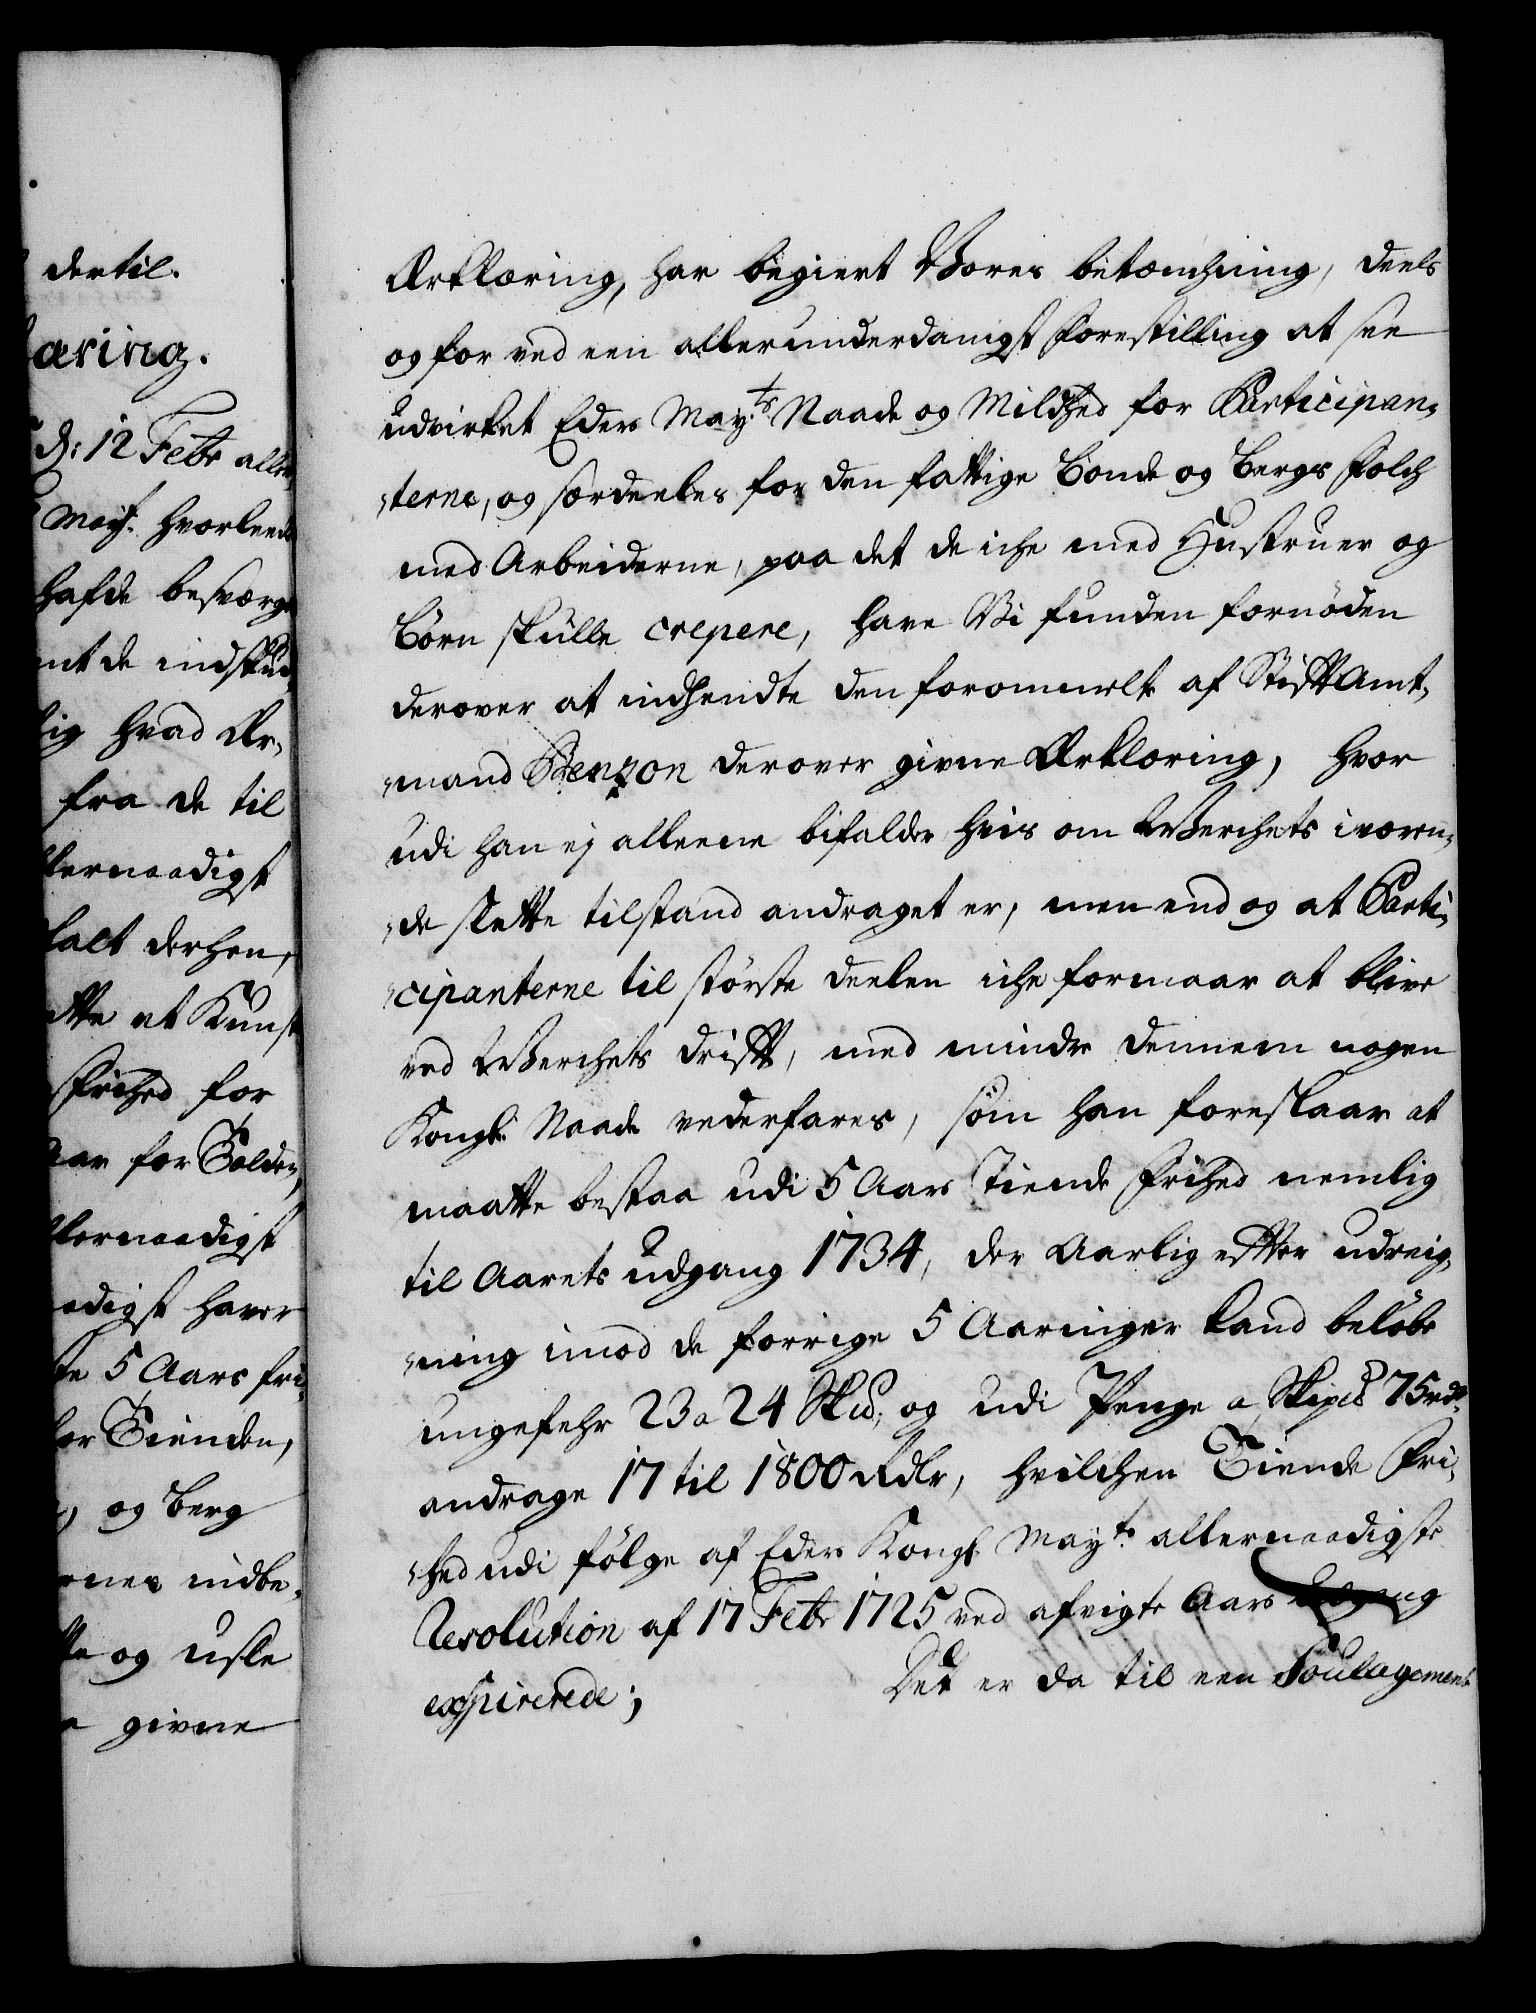 dertil.
æring.
d: 12 Febr aller
Mayt. hvorleed
hafde besværge
mt de indskud
lig hvad Er,
fra de til
lernaadigst
falt derhen,
dtte et Kunst
Frihed for
aar for Tolden,
lernaadigst
adigst haver
te 5 Aars fri,
for Tienden,
og Berg
ernes indbe,
tte og usle
givne
Erklæring, har begiert Vores betænchning, deels
og for ved een allerunderdanigst Forestilling at see
udvirket Eders May.ts Naade og Mildhed for Participan,
,terne, og særdeeles for den fattige Bonde og Bergs Folch
med Arbeiderne, paa det de iche med Hustruer og
Børn skulle crepere, have Vi funden fornøden
derover at indhendte den forommelte af StiftAmt,
,mand Benzon derover givne Erklæring, hvor
udi han ej alleene bifalder hvis om Werchets iværen,
,de slette tilstand andraget er, men end og at Parti,
,cipanterne til største deelen iche formaar at blive
ved Werchets drifft, med mindre dennem nogen
Kongl. Naade vederfares, som han foreslaar at
maatte bestaa udi 5 Aars Tiende Frihed nemlig
til Aarets udgang 1734, der Aarlig effter udreig,
,ning imod de forrige 5 Aaringer kand beløbe
ungefehr 23 a 24 Skd, og udi Penge a Skipd 75 rdr.
andrage 17 til 1800 Rdlr, hvilchen Tiende Fri,
,hed udi følge af Eders Kongl. Mayts. allernaadigste
Resolution af 17 Febr 1725 ved afvigte Aars udgang
exspirerede; Det er da til een Soulagement